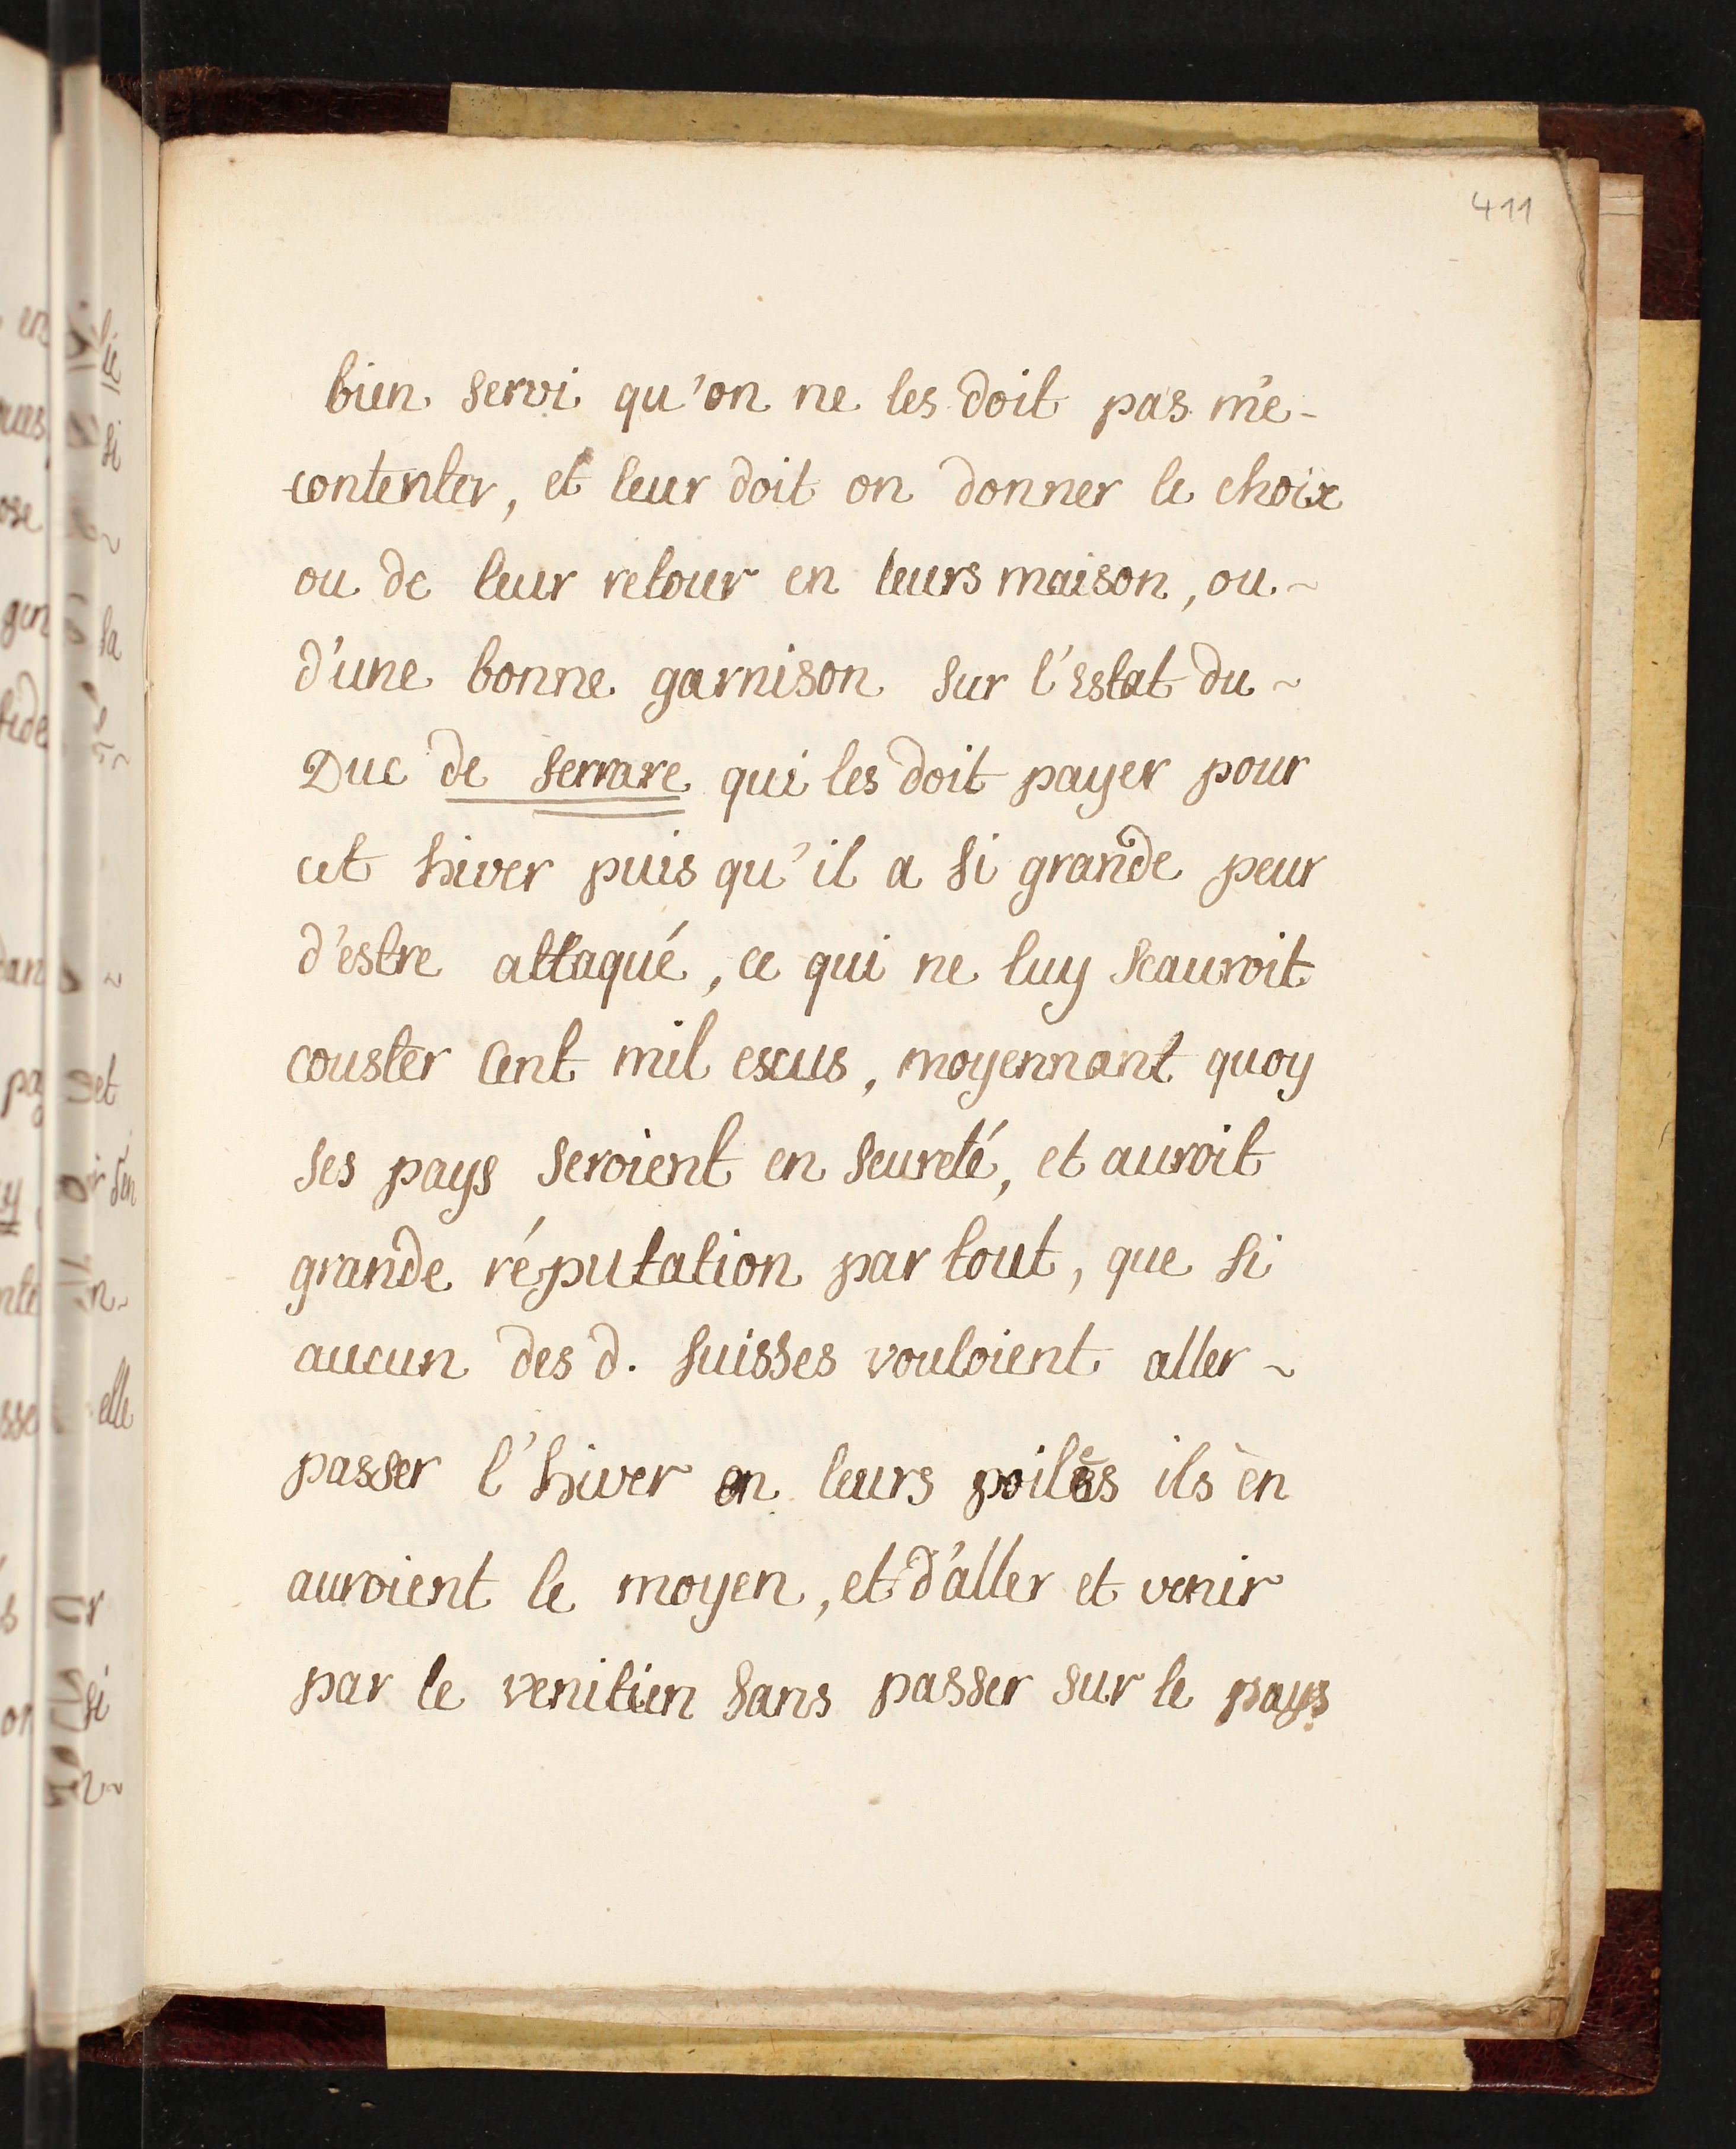 411
bien servi qu'on ne les doit pas mé-
contenter, et leur doit on donner le choix
ou de leur retour en leurs maison, ou ~
d'une bonne garnison sur l'estat du ~
Duc de ferrare qui les doit payer pour
cet hiver puis qu'il a si grande peur
d'estre attaqué, ce qui ne luy scauroit
couster Cent mil escus, moyennant quoy
ses pays seroient en seureté, et auroit
grande réputation par tout, que si
aucun des d. suisses vouloient aller ~
passer l'hiver en leurs poiles ils èn
auroient le moyen, et d'aller et venir
par le venitien sans passer sur le pays